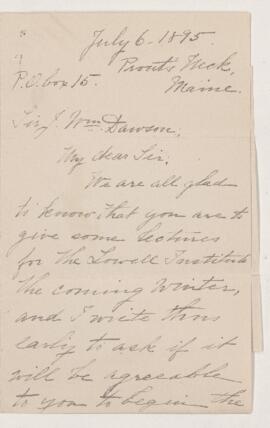 July 6 - 1895.
Prout's Neck,
P.O. box 15. Maine.
Sir J. Wm Dawson;
My dear Sir;
We are all glad
to know that you are to
give some lectures
for the Lowell Institute
the coming Winter,
and I write thus
early to ask if it
will be agreeable
to you to begin the